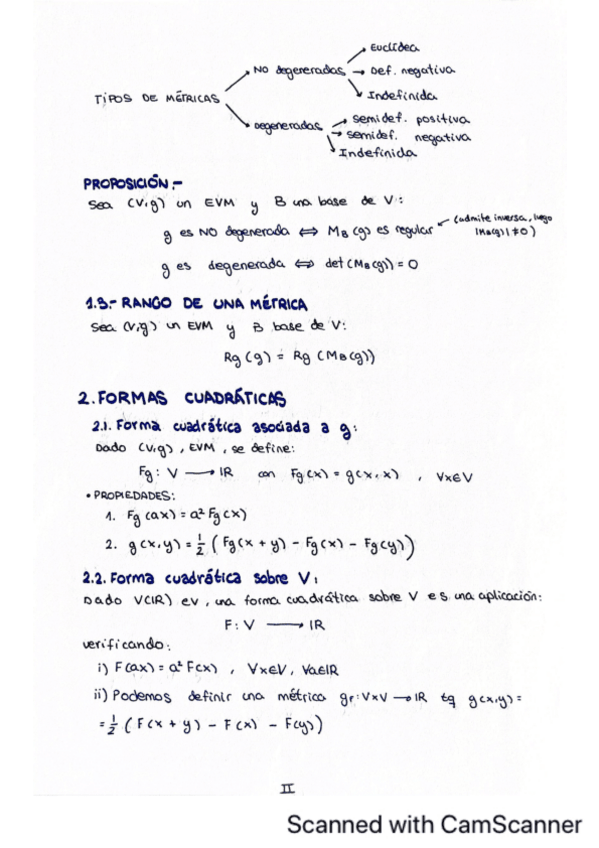 Euclídea
TIPOS DE MÉTRICAS
NO degeneradas → Def. negativa
Indefinida
Degeneradas → semidef. positiva
→ semidef. negativa
Indefinida
PROPOSICIÓN.-
Sea (V,g) un EVM y B una base de V:
g es NO degenerada ⟺ M_B(g) es regular ← (admite inversa, luego
|M_B(g)| ≠ 0)
g es degenerada ⟺ det(M_B(g)) = 0
1.3.- RANGO DE UNA MÉTRICA
Sea (V,g) un EVM y B base de V:
Rg(g) = Rg(M_B(g))
2. FORMAS CUADRÁTICAS
2.1. Forma cuadrática asociada a g:
Dado (V,g), EVM, se define:
Fg: V → IR con Fg(x) = g(x,x) , ∀x∈V
• PROPIEDADES:
1. Fg(ax) = a² Fg(x)
2. g(x,y) = 1/2 (Fg(x + y) - Fg(x) - Fg(y))
2.2. Forma cuadrática sobre V:
Dado V(IR) ev, una forma cuadrática sobre V es una aplicación:
F: V → IR
verificando:
i) F(ax) = a² F(x) , ∀x∈V, ∀a∈IR
ii) Podemos definir una métrica g_F: V×V → IR tq g(x,y) =
= 1/2 (F(x + y) - F(x) - F(y))
II
Scanned with CamScanner